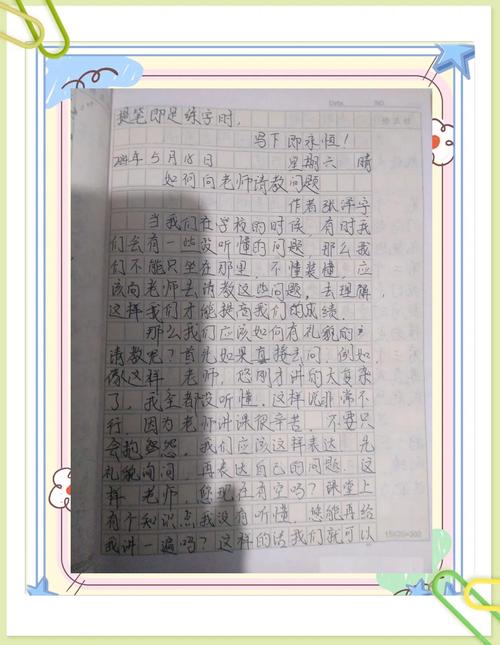 提笔即是练字时,
写下即永恒!
2024年5月18日 星期六 晴
如何向老师请教问题
作者张泽宇
当我们在学校的时候,有时我
们会有一些没听懂的问题,那么我
们不能只坐在那里,不懂装懂,应
该向老师去请教这些问题,去理解,
这样我们才能提高我们的成绩.
那么我们应该如何有礼貌的
请教呢?首先如果直接去问,例如
像这样,老师,您刚才讲的太复杂
了,我全都没听懂,这样呢非常不
行,因为老师讲课很辛苦,不要只
会抱怨,我们应该这样表达,先
礼貌询问,再表达自己的问题,这
样 老师,您现在有空吗?课堂上
有个知识点我没有听懂,您能再给
我讲一遍吗?这样的话我们就可以
Date. NO.
15X20=300